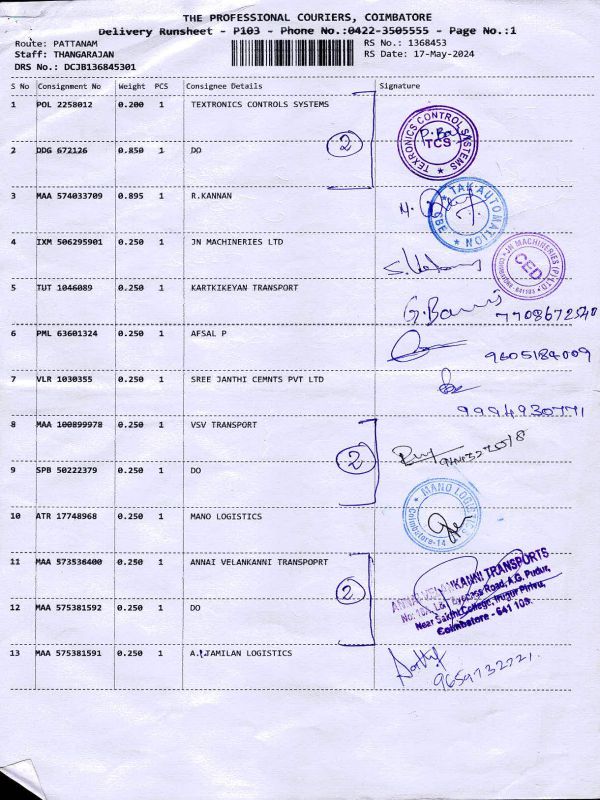 THE PROFESSIONAL COURIERS, COIMBATORE
Delivery Runsheet - P103 - Phone No.:0422-3505555 - Page No.:1
Route: PATTANAM
RS No.: 1368453
Staff: THANGARAJAN
RS Date: 17-May-2024
DRS No.: DCJB136845301
S No Consignment No Weight PCS Consignee Details Signature
1 POL 2258012 0.200 1 TEXTRONICS CONTROLS SYSTEMS
TEXRONICS CONTROL SYSTEMS
TCS
2
2 DDG 672126 0.850 1 DO
3 MAA 574033709 0.895 1 R.KANNAN
TAK AUTOMATION
CBE
4 IXM 506295901 0.250 1 JN MACHINERIES LTD
JN MACHINERIES (P) LTD
CED
5 TUT 1046089 0.250 1 KARTKIKEYAN TRANSPORT
7708672540
6 PML 63601324 0.250 1 AFSAL P
9605184009
7 VLR 1030355 0.250 1 SREE JANTHI CEMNTS PVT LTD
9994930771
8 MAA 100899978 0.250 1 VSV TRANSPORT
2
9 SPB 50222379 0.250 1 DO
10 ATR 17748968 0.250 1 MANO LOGISTICS
MANO LOGISTICS
Coimbatore-14
11 MAA 573536400 0.250 1 ANNAI VELANKANNI TRANSPOPRT
2
ANNAI VELANKANNI TRANSPORTS
Road, A.G. Pudur,
Near Sakthi College, Irugur Pirivu,
Coimbatore - 641 103.
12 MAA 575381592 0.250 1 DO
13 MAA 575381591 0.250 1 A.P.TAMILAN LOGISTICS
9659732721.